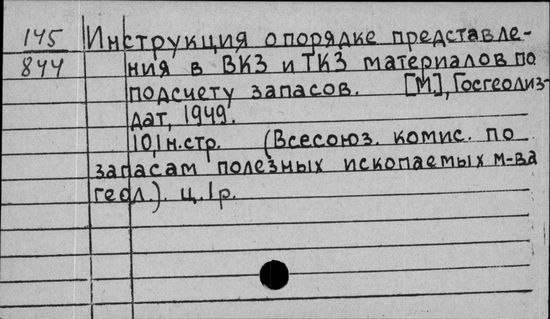 145 Инструкция о порядке представле-
844 ния в ВКЗ и ТКЗ материалов по
подсчету запасов. [М], Госгеолиз-
дат, 1949.
10,1н.стр. (Всесоюз. комис. по
запасам полезных ископаемых м-ва
геол.). ц. 1р.